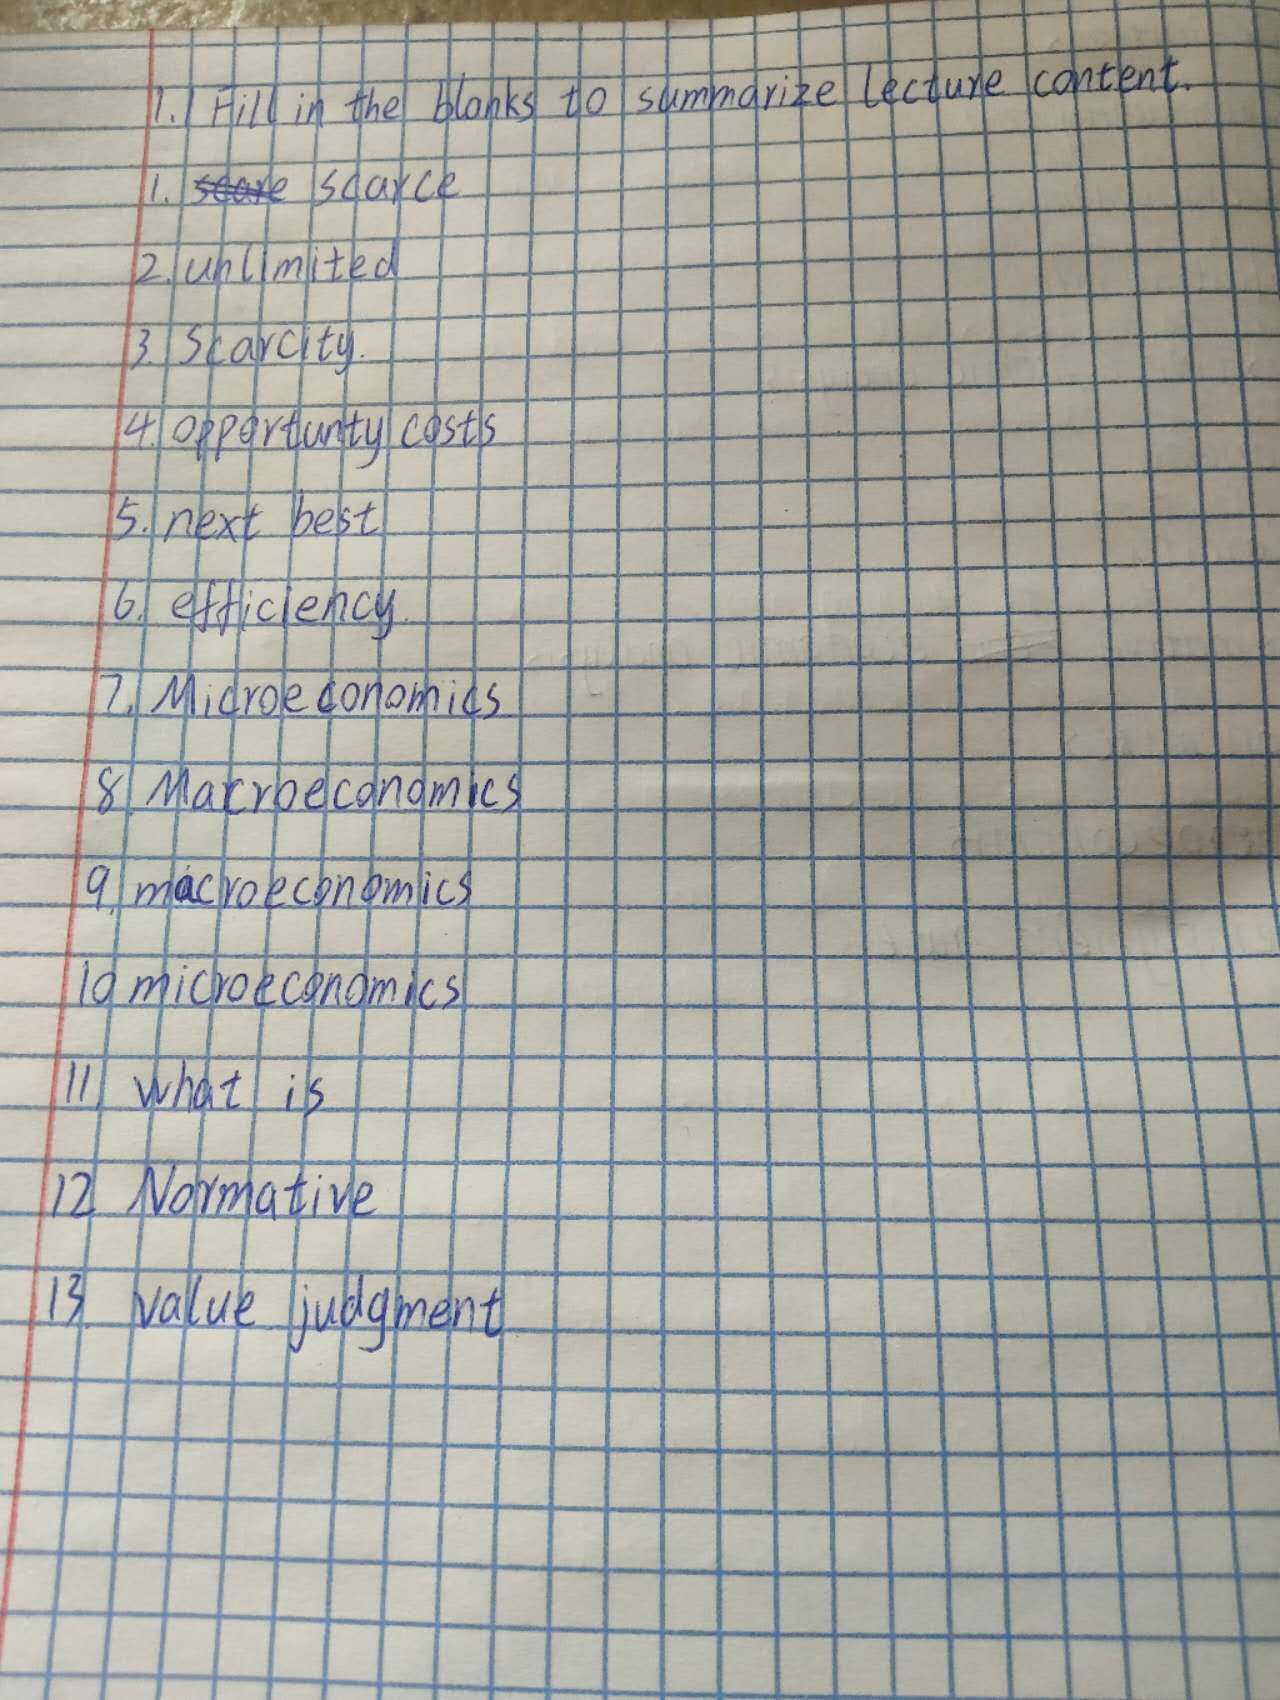 1. Fill in the blanks to summarize lecture content.
1. scarce
2. unlimited
3. Scarcity.
4. opportunty costs
5. next best
6. efficiency.
7. Microeconomics
8. Macroeconomics
9. macroeconomics
10 microeconomics
11 what is
12 Normative
13 value judgment